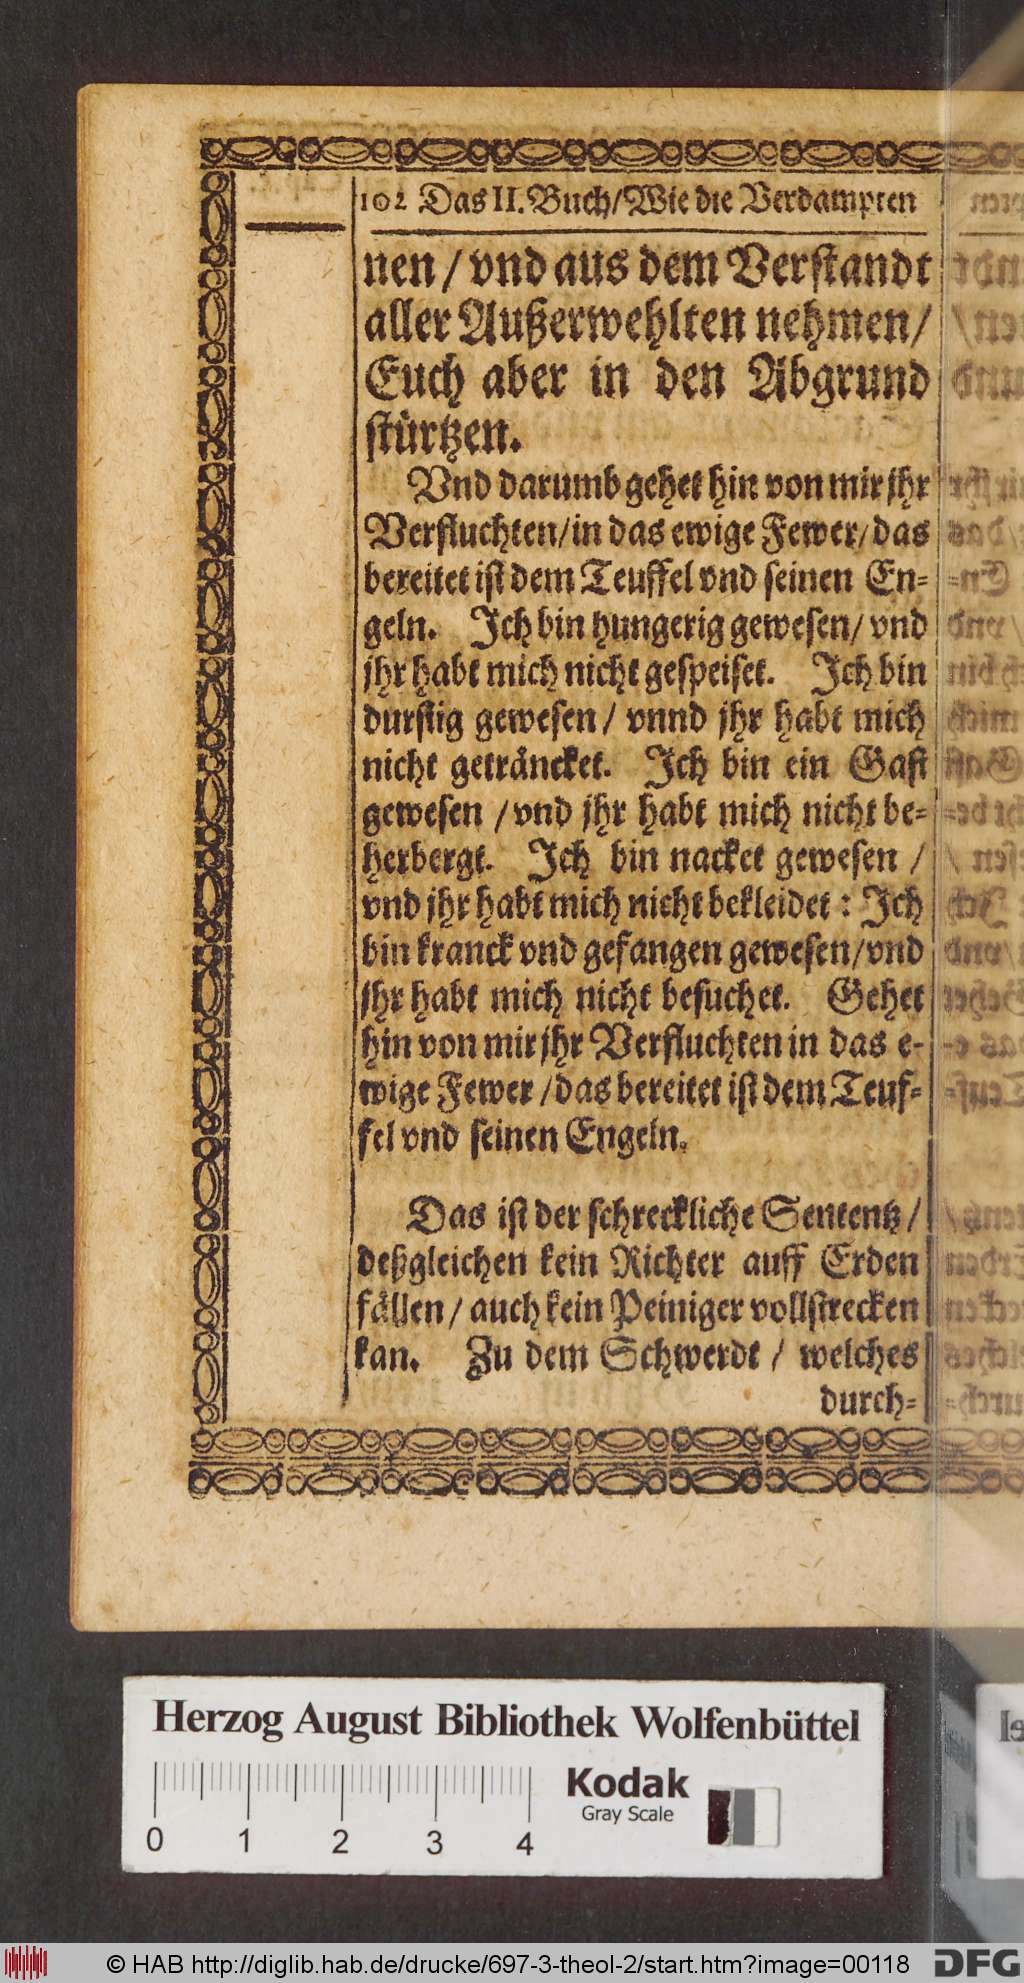 102 Das II. Buch/Wie die Verdampten
nen / vnd aus dem Verstandt
aller Außerwehlten nehmen/
Euch aber in den Abgrund
stürtzen.
Vnd darumb gehet hin von mir jhr
Verfluchten/in das ewige Fewer/das
bereitet ist dem Teuffel vnd seinen En-
geln. Ich bin hungerig gewesen/ vnd
jhr habt mich nicht gespeiset. Ich bin
durstig gewesen / vnnd jhr habt mich
nicht geträncket. Ich bin ein Gast
gewesen /vnd jhr habt mich nicht be-
herbergt. Ich bin nacket gewesen /
vnd jhr habt mich nicht bekleidet : Ich
bin kranck vnd gefangen gewesen/vnd
jhr habt mich nicht besuchet. Gehet
hin von mir jhr Verfluchten in das e-
wige Fewer /das bereitet ist dem Teuf-
fel vnd seinen Engeln.
Das ist der schreckliche Sententz /
deßgleichen kein Richter auff Erden
fällen / auch kein Peiniger vollstrecken
kan. Zu dem Schwerdt / welches
durch-
Herzog August Bibliothek Wolfenbüttel
Kodak
Gray Scale
0 1 2 3 4
© HAB http://diglib.hab.de/drucke/697-3-theol-2/start.htm?image=00118
DFG